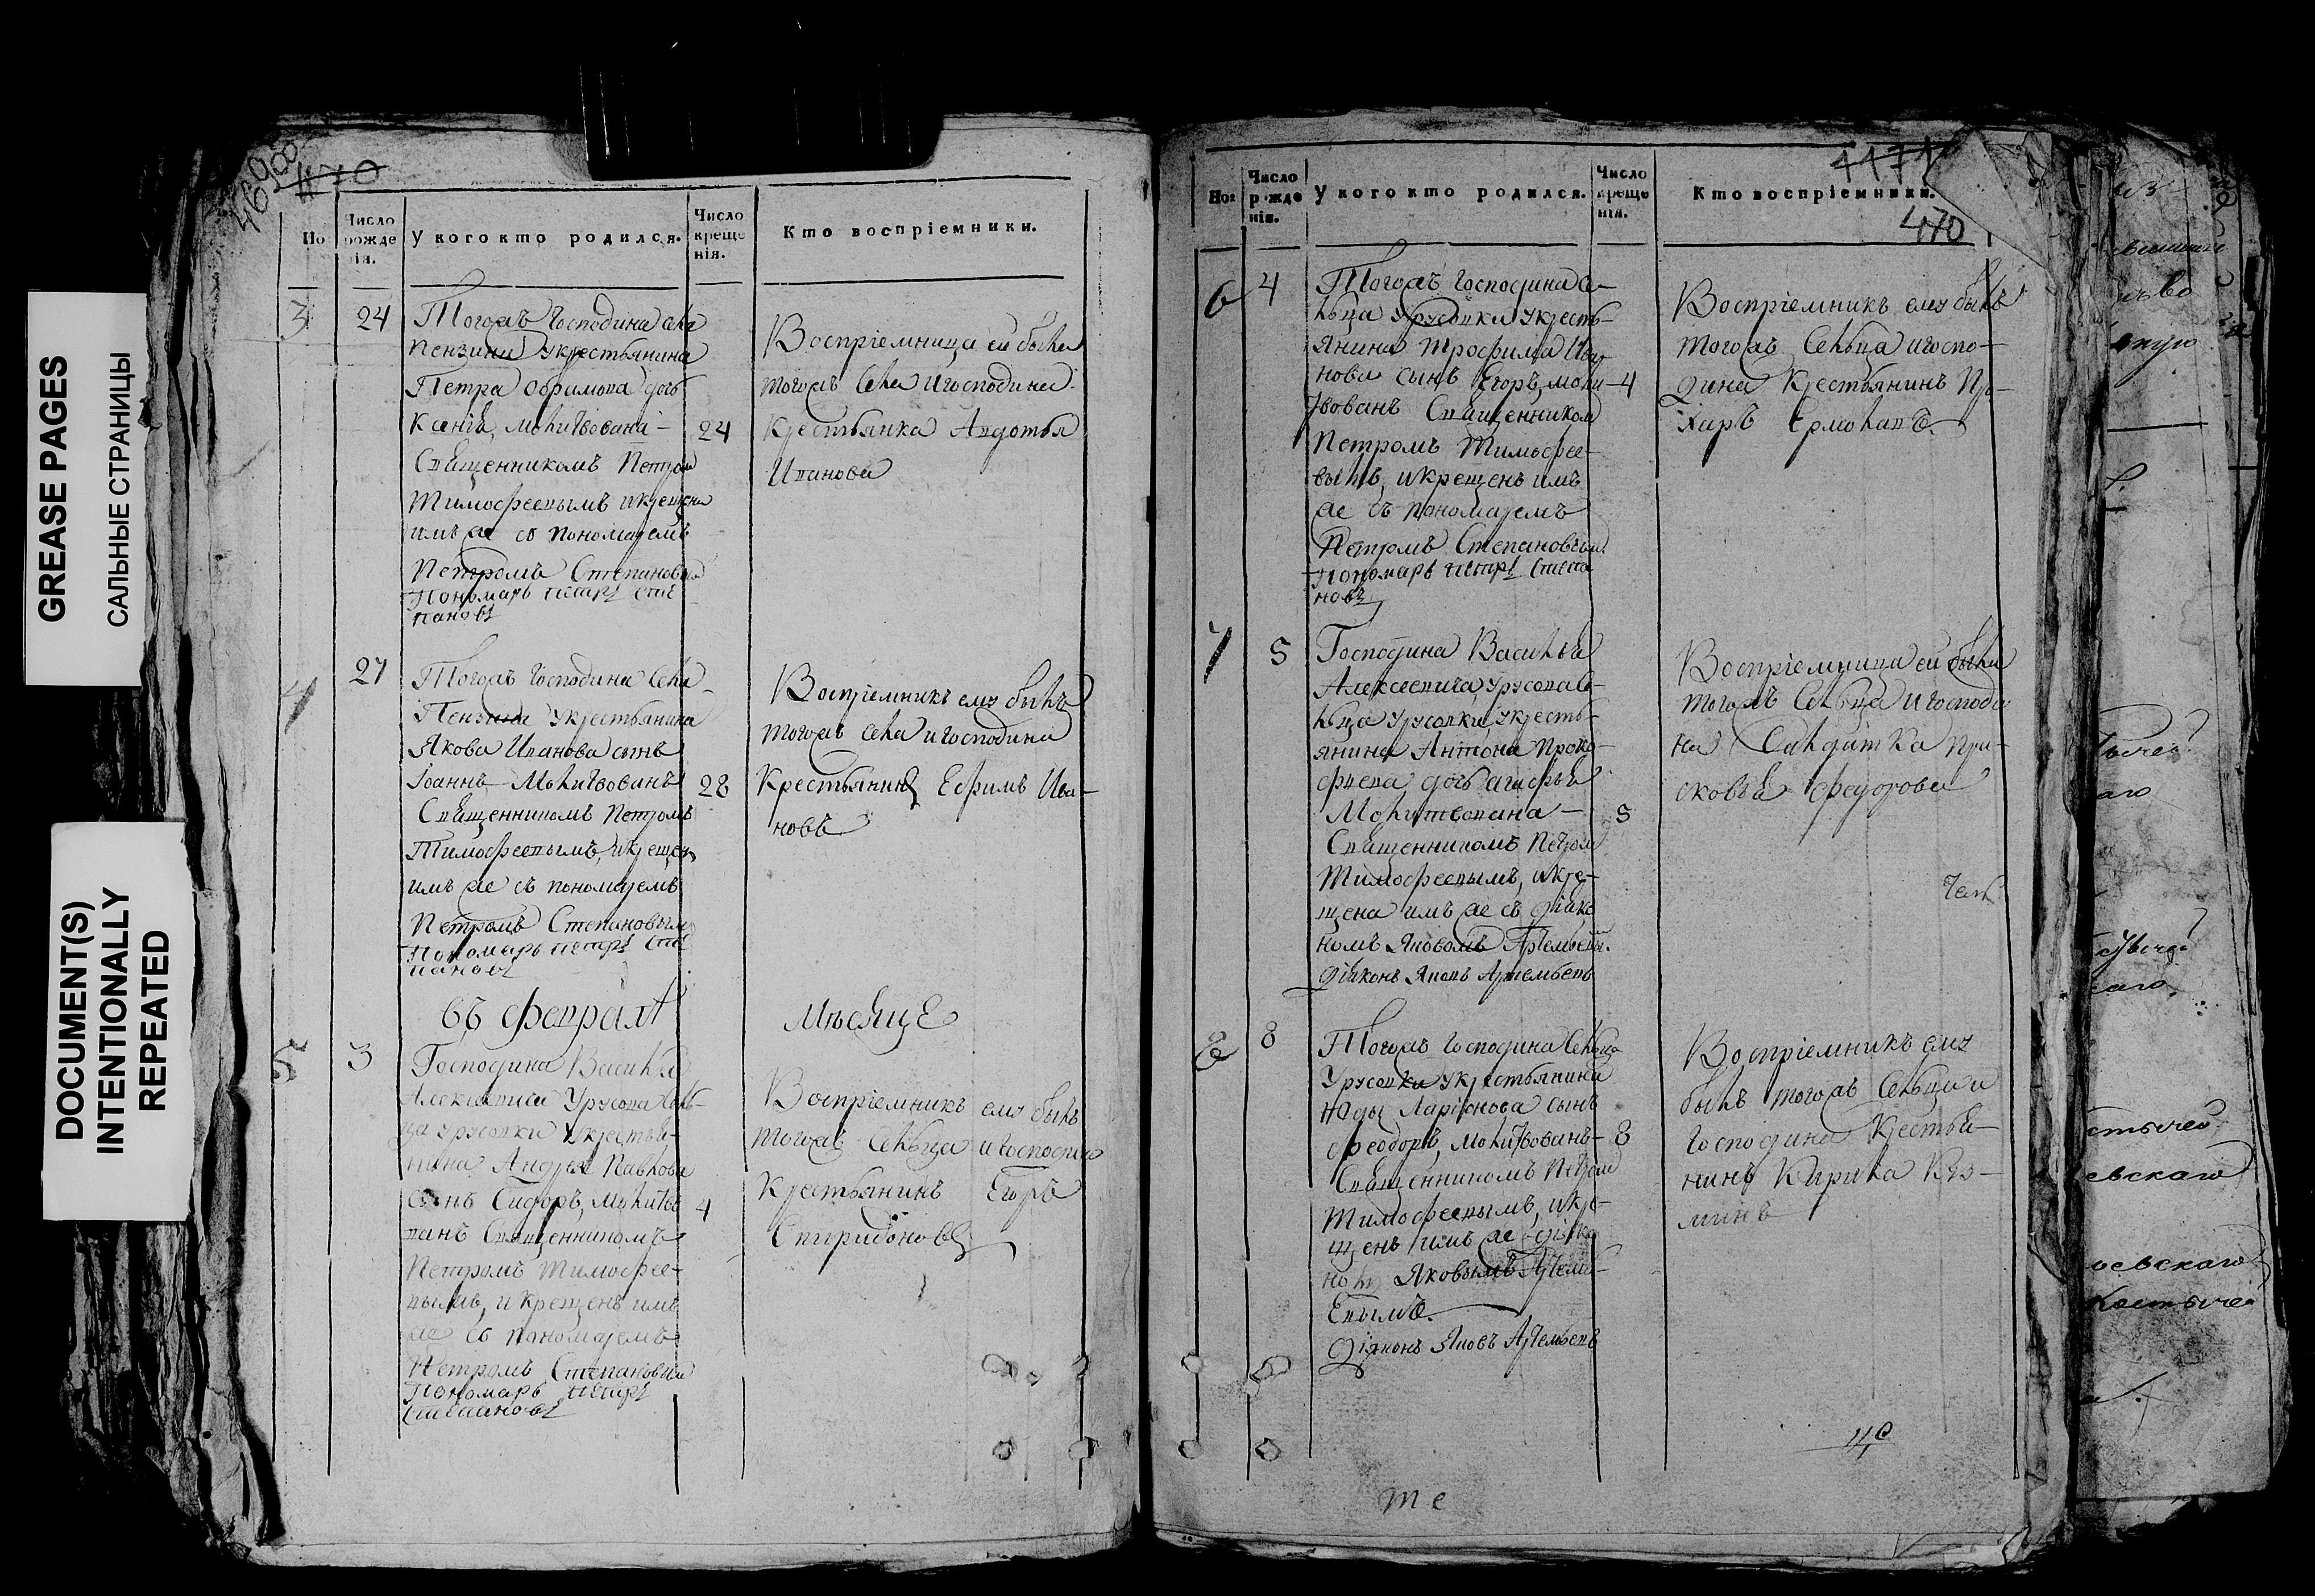 GREASE PAGES
САЛЬНЫЕ СТРАНИЦЫ
DOCUMENT(S)
INTENTIONALLY
REPEATED
470
Но
Число рожде нія.
У кого кто родился.
Число креще нія.
Кто воспріемники.
3
24
Тогожъ Господина села
Пензини укрестьянина
Петра дочь
Ксенія, молитвована —
24
Священникомъ Петром
Тимофеевымъ икрещена
имъ же со пономаремъ
Петромъ Степановым
Пономарь петръ сте
пановъ
Восприемница ей была
тогожъ села игосподина
Крестьянка Авдотья
Иванова
4
27
Тогожъ Господина села
Пензини укрестьянина
Якова Иванова сынъ
Іоаннъ — Молитвованъ
28
Священникомъ Петромъ
Тимофеевымъ, икрещен
имъ же съ пономаремъ
Петромъ Степановым
Пономарь петръ Сте
пановъ
Воспріемникъ ему былъ
тогожъ села игосподина
Крестьянинъ Ефимъ Ива-
новъ
въ февралѣ
Мѣсяцѣ
5
3
Господина Василья
Алексеевича Урусова сель-
ца урусовки укрестья-
нина Андрея Павлова
сынъ Сидоръ, молитво
4
ванъ Священникомъ
Петромъ Тимофее-
вымъ, и крещенъ имъ
же со пономаремъ
Петромъ Степановым
Пономарь петръ
Степановъ
Воспріемникъ ему былъ
тогожъ сельца игосподина
Крестьянинъ Егоръ
Спиридоновъ
470
Но
Число рожде нія.
У кого кто родился.
Число креще нія.
Кто воспріемники.
6
4
Тогожъ господина се-
льца урусовки укресть-
янина Трофима Ива
нова сынъ Егоръ, моли-
4
твованъ Священником
Петромъ Тимофее-
вымъ, икрещенъ имъ
же съ пономаремъ
Петромъ Степановым
Пономарь петръ степа
новъ
Воспріемникъ ему былъ
тогожъ Сельца игоспо-
дина Крестьянинъ Про-
харъ Ермолаевъ
7
5
Господина Василья
Алексеевича, урусова се-
льца урусовки, укресть-
янина Антона Проко-
фиева дочь агафья
Молитвована —
5
Священникомъ Петром
Тимофеевымъ, икре-
щена имъ же съ діако
номъ Яковомъ Артемьевы.
діаконъ Яковъ Артемьевъ
Восприемница ей была
тогожъ Сельца игосподи
на Салдатка Пра-
сковья Федорова
8
8
Тогожъ господина Сельца
Урусовки укрестьянина
Ларіонова сынъ
феодоръ, молитвованъ —
8
Священникомъ Петром
Тимофеевымъ, икре-
щенъ имъ же діако
Яковымъ Артемь-
евымъ.
Діяконъ Яковъ Артемьевъ
Воспріемникъ ему
былъ тогожъ Сельца и
господина Крестья-
нинъ Кирила Куз-
минъ
те